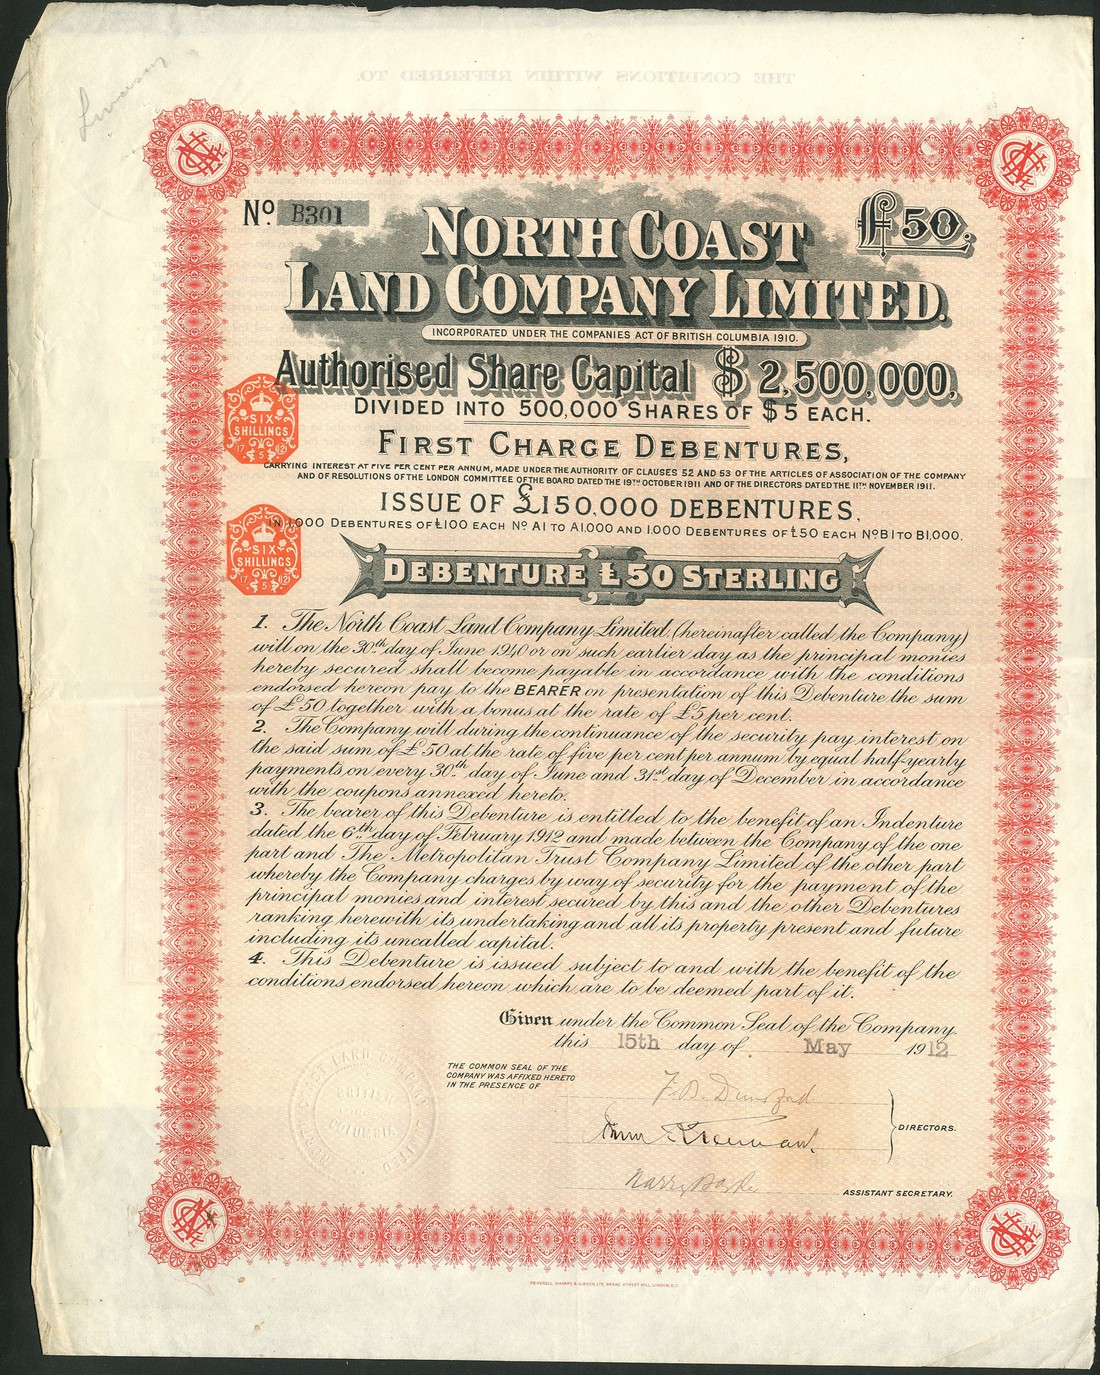 THE CONDITIONS WITHIN REFERRED TO.
No. B301
£50.
NORTH COAST
LAND COMPANY LIMITED.
INCORPORATED UNDER THE COMPANIES ACT OF BRITISH COLUMBIA 1910.
Authorised Share Capital $2,500,000,
DIVIDED INTO 500,000 SHARES OF $5 EACH.
FIRST CHARGE DEBENTURES,
CARRYING INTEREST AT FIVE PER CENT PER ANNUM, MADE UNDER THE AUTHORITY OF CLAUSES 52 AND 53 OF THE ARTICLES OF ASSOCIATION OF THE COMPANY
AND OF RESOLUTIONS OF THE LONDON COMMITTEE OF THE BOARD DATED THE 19TH OCTOBER 1911 AND OF THE DIRECTORS DATED THE 11TH NOVEMBER 1911.
ISSUE OF £150,000 DEBENTURES,
IN 1,000 DEBENTURES OF £100 EACH No A1 TO A1,000 AND 1,000 DEBENTURES OF £50 EACH No B1 TO B1,000.
SIX
SHILLINGS
17 5 12
SIX
SHILLINGS
17 5 12
DEBENTURE £50 STERLING
1. The North Coast Land Company Limited, (hereinafter called the Company)
will on the 30th day of June 1940 or on such earlier day as the principal monies
hereby secured shall become payable in accordance with the conditions
endorsed hereon pay to the BEARER on presentation of this Debenture the sum
of £50 together with a bonus at the rate of £5 per cent.
2. The Company will during the continuance of the security pay interest on
the said sum of £50 at the rate of five per cent per annum by equal half-yearly
payments on every 30th day of June and 31st day of December in accordance
with the coupons annexed hereto.
3. The bearer of this Debenture is entitled to the benefit of an Indenture
dated the 6th day of February 1912 and made between the Company of the one
part and The Metropolitan Trust Company Limited of the other part
whereby the Company charges by way of security for the payment of the
principal monies and interest secured by this and the other Debentures
ranking herewith its undertaking and all its property present and future
including its uncalled capital.
4. This Debenture is issued subject to and with the benefit of the
conditions endorsed hereon which are to be deemed part of it.
Given under the Common Seal of the Company
this 15th day of May 1912
THE COMMON SEAL OF THE
COMPANY WAS AFFIXED HERETO
IN THE PRESENCE OF
DIRECTORS.
ASSISTANT SECRETARY.
BRITISH
COLUMBIA